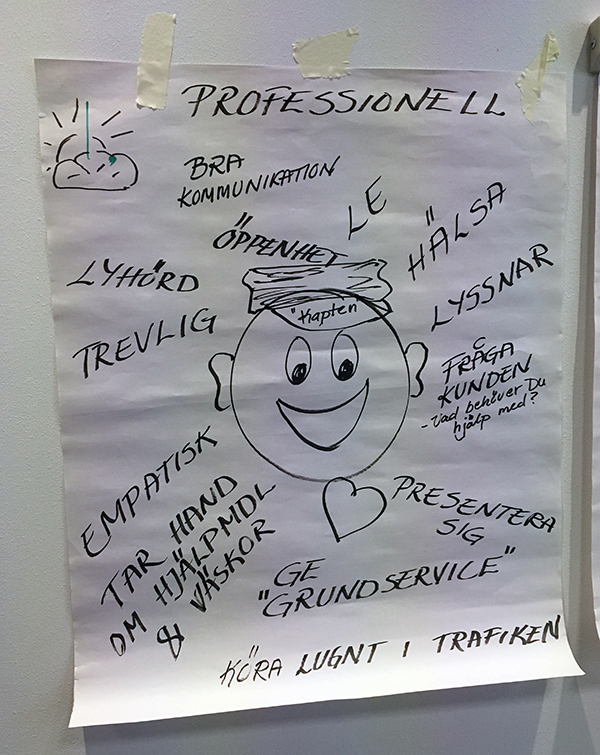 PROFESSIONELL
BRA
KOMMUNIKATION
LE
HÄLSA
ÖPPENHET
LYHÖRD
LYSSNAR
TREVLIG
"Kapten
FRÅGA
KUNDEN
- Vad behöver Du
hjälp med?
EMPATISK
TAR HAND
OM HJÄLPMDL
& VÄSKOR
PRESENTERA
SIG
"GE
GRUNDSERVICE"
KÖRA LUGNT I TRAFIKEN